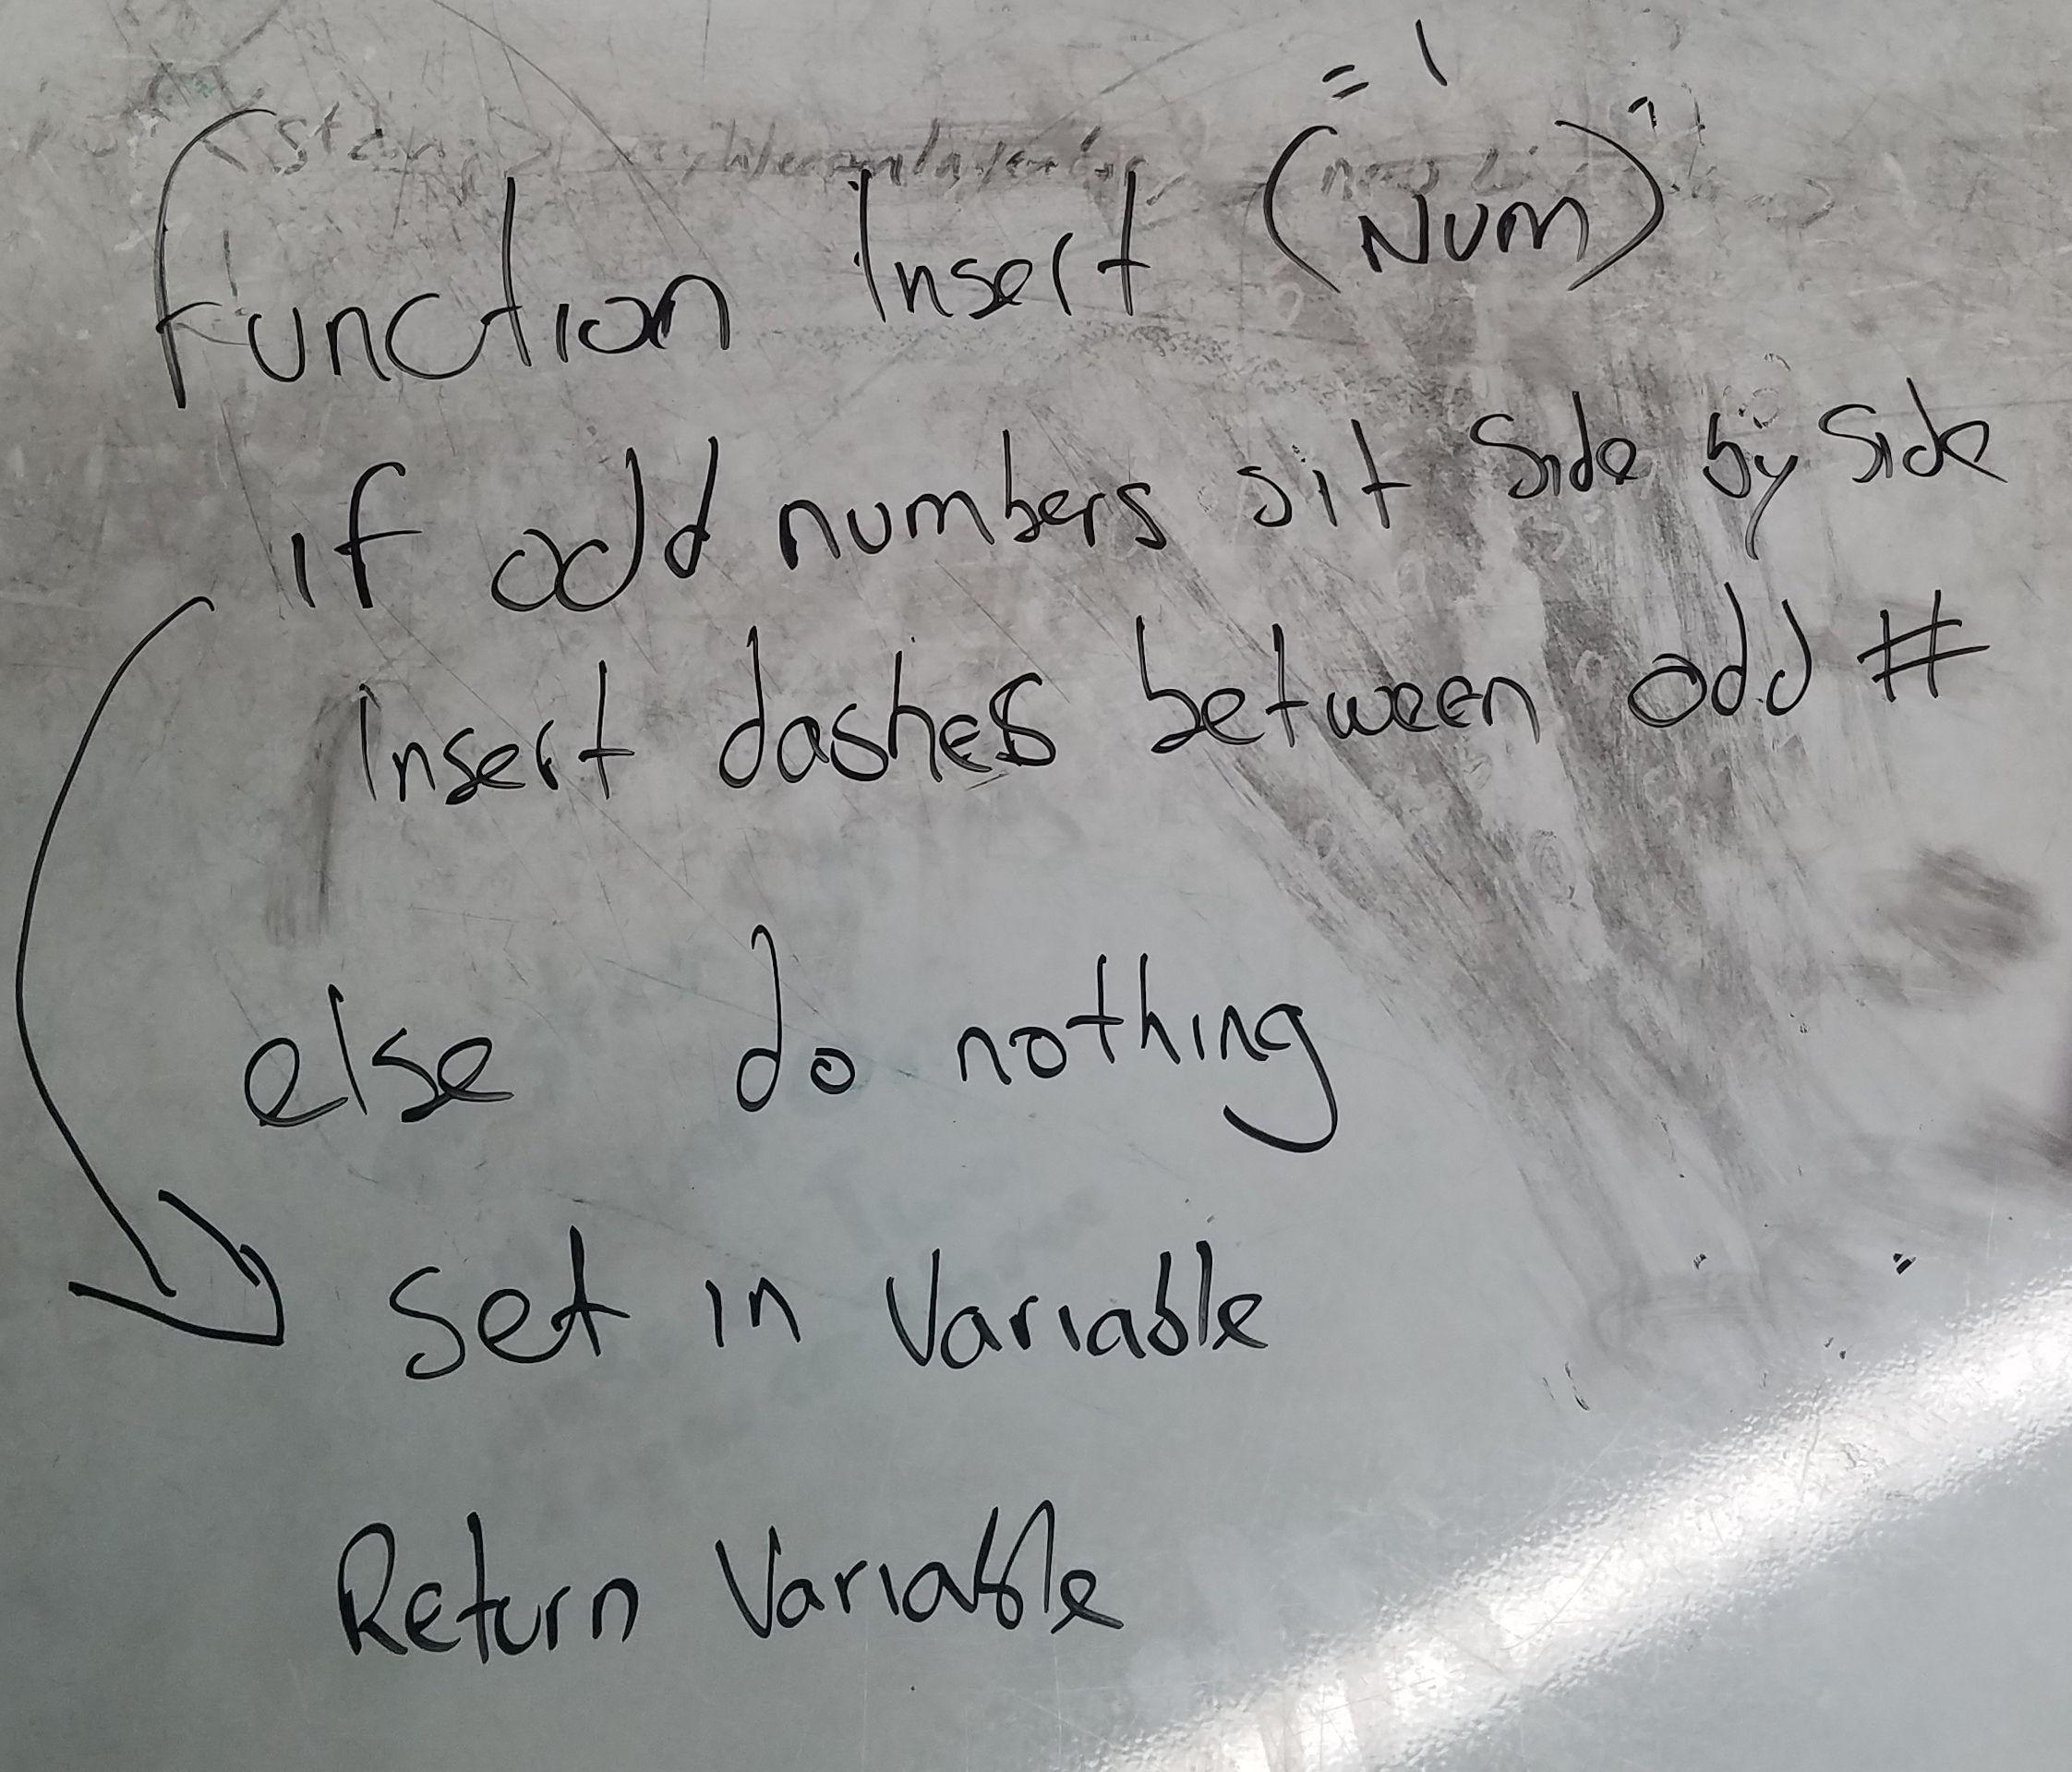 = 1
Function Insert (Num)
if odd numbers sit side by side
Insert dashes between odd #
else do nothing
set in Variable
Return Variable